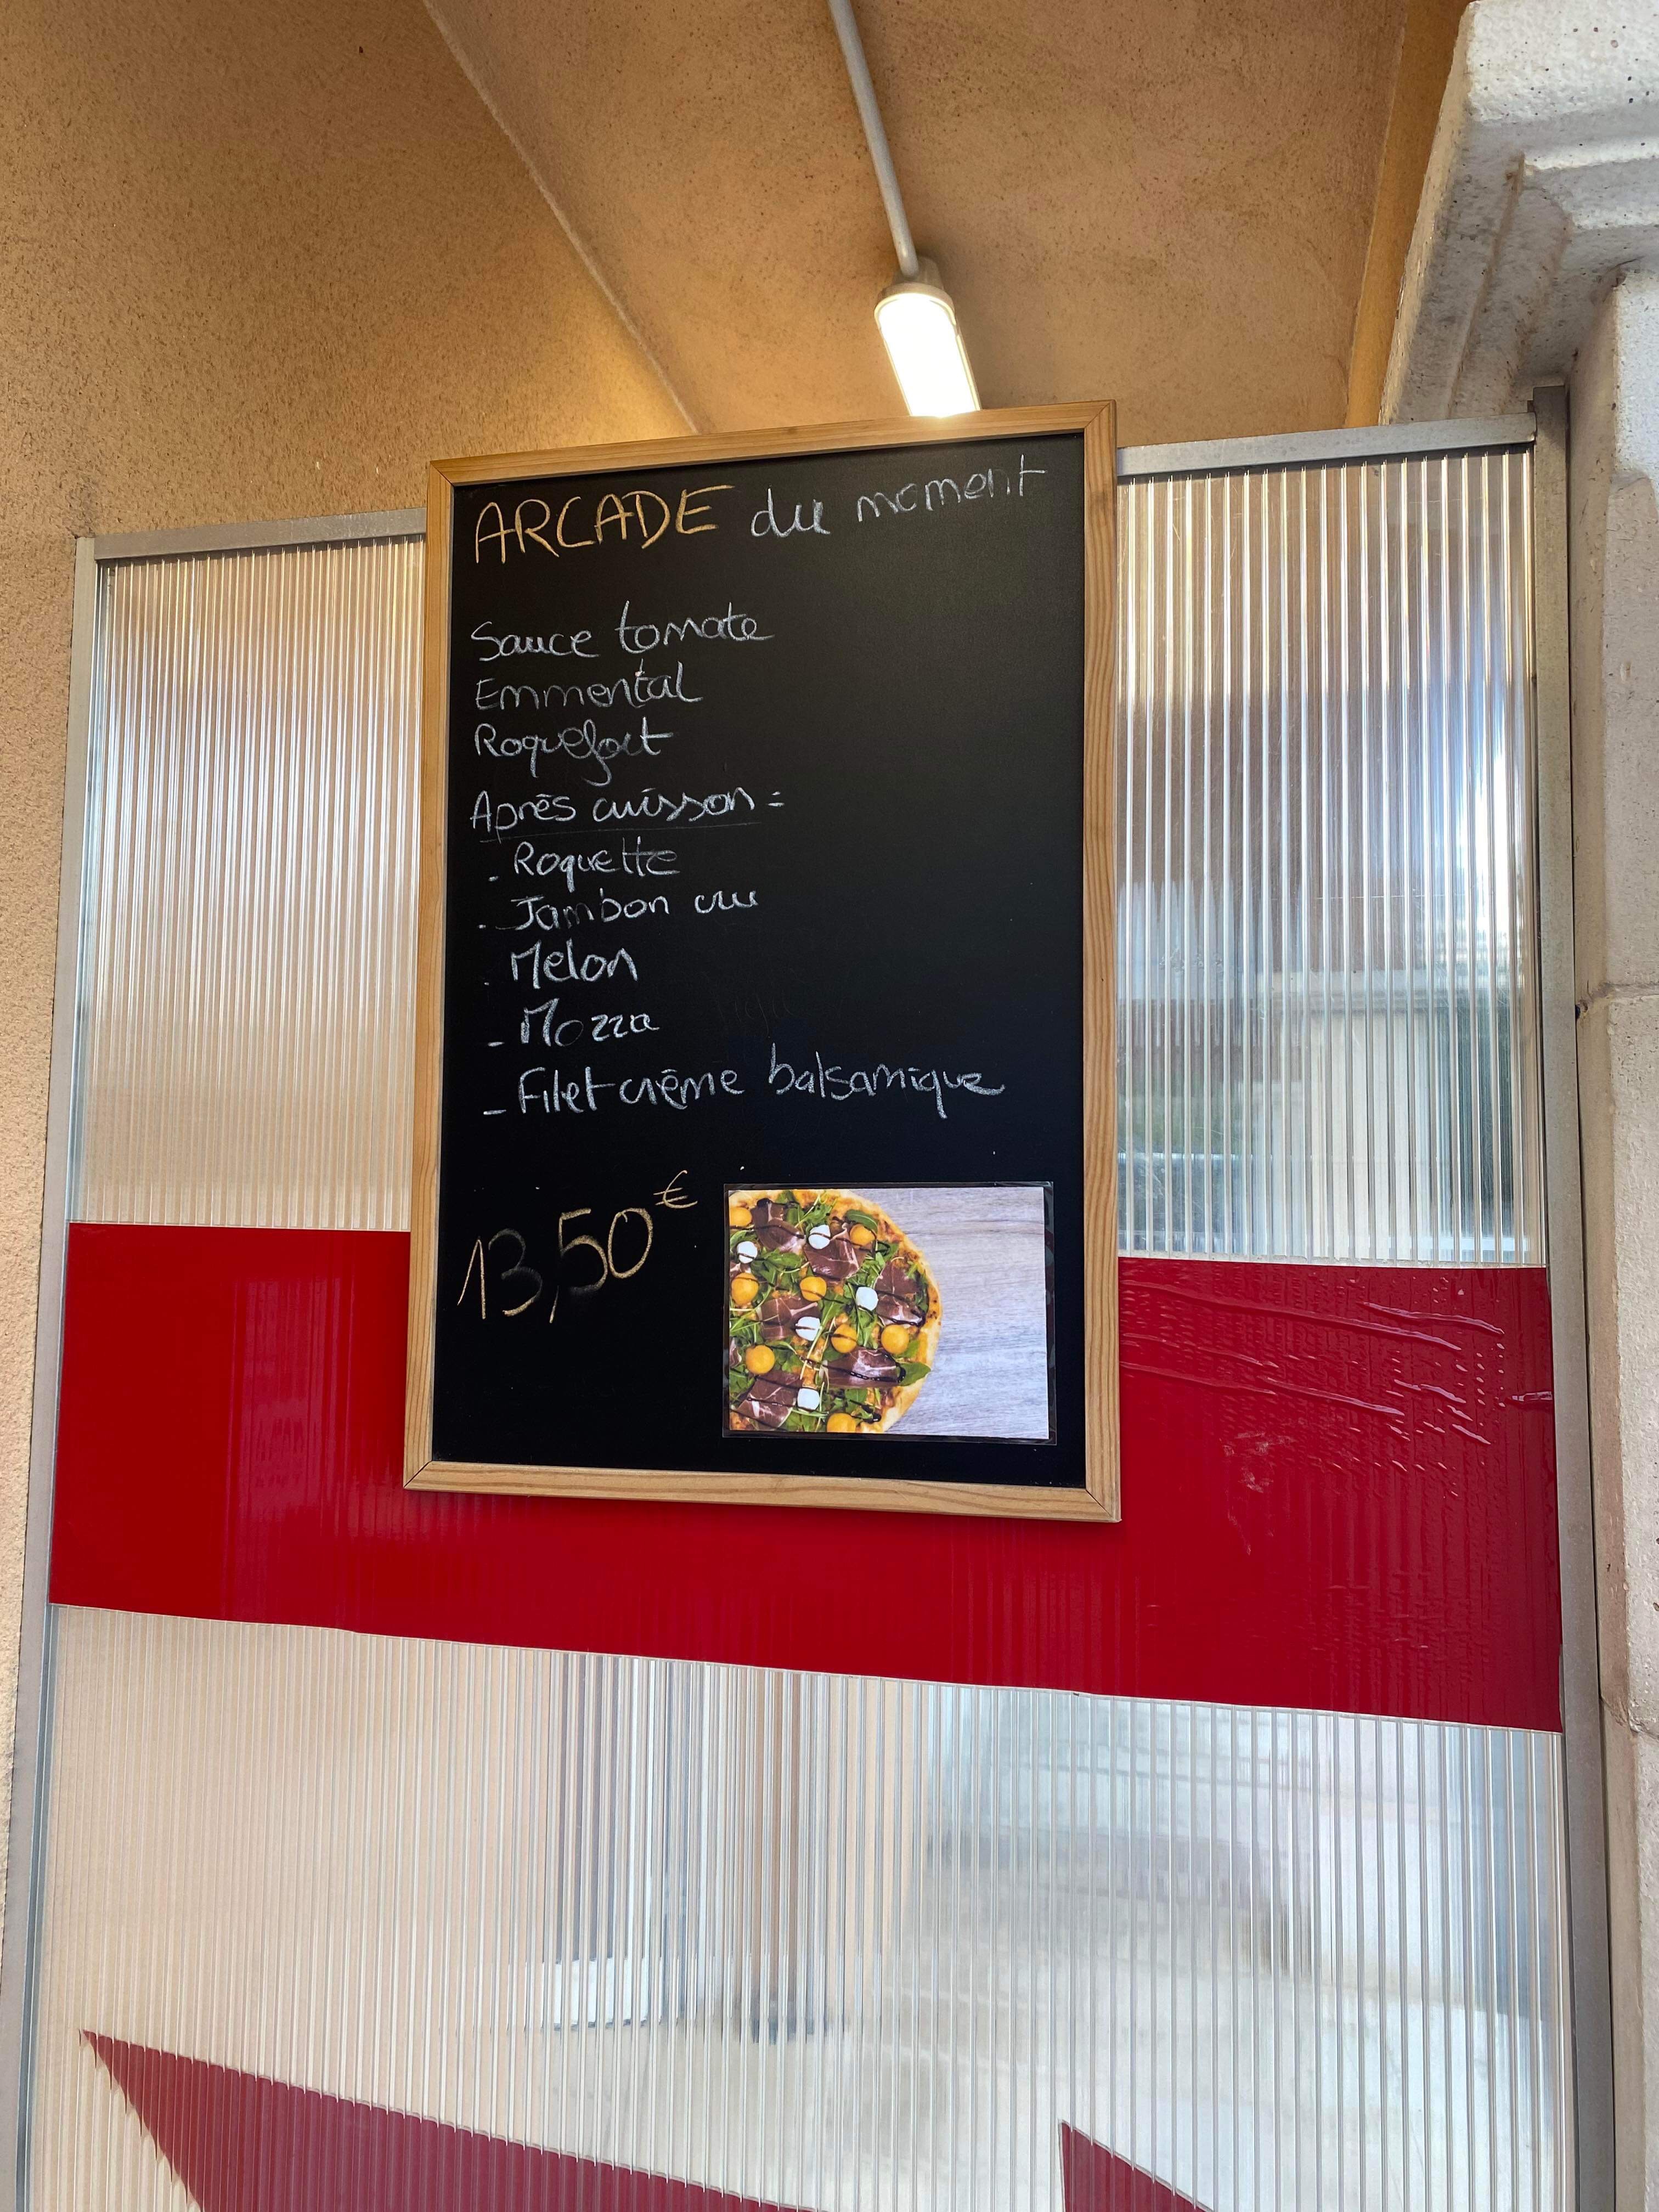 ARCADE du moment
Sauce tomate
Emmental
Roquefort
Après cuisson :
- Roquette
- Jambon cru
- Melon
- Mozza
- Filet crème balsamique
13,50€